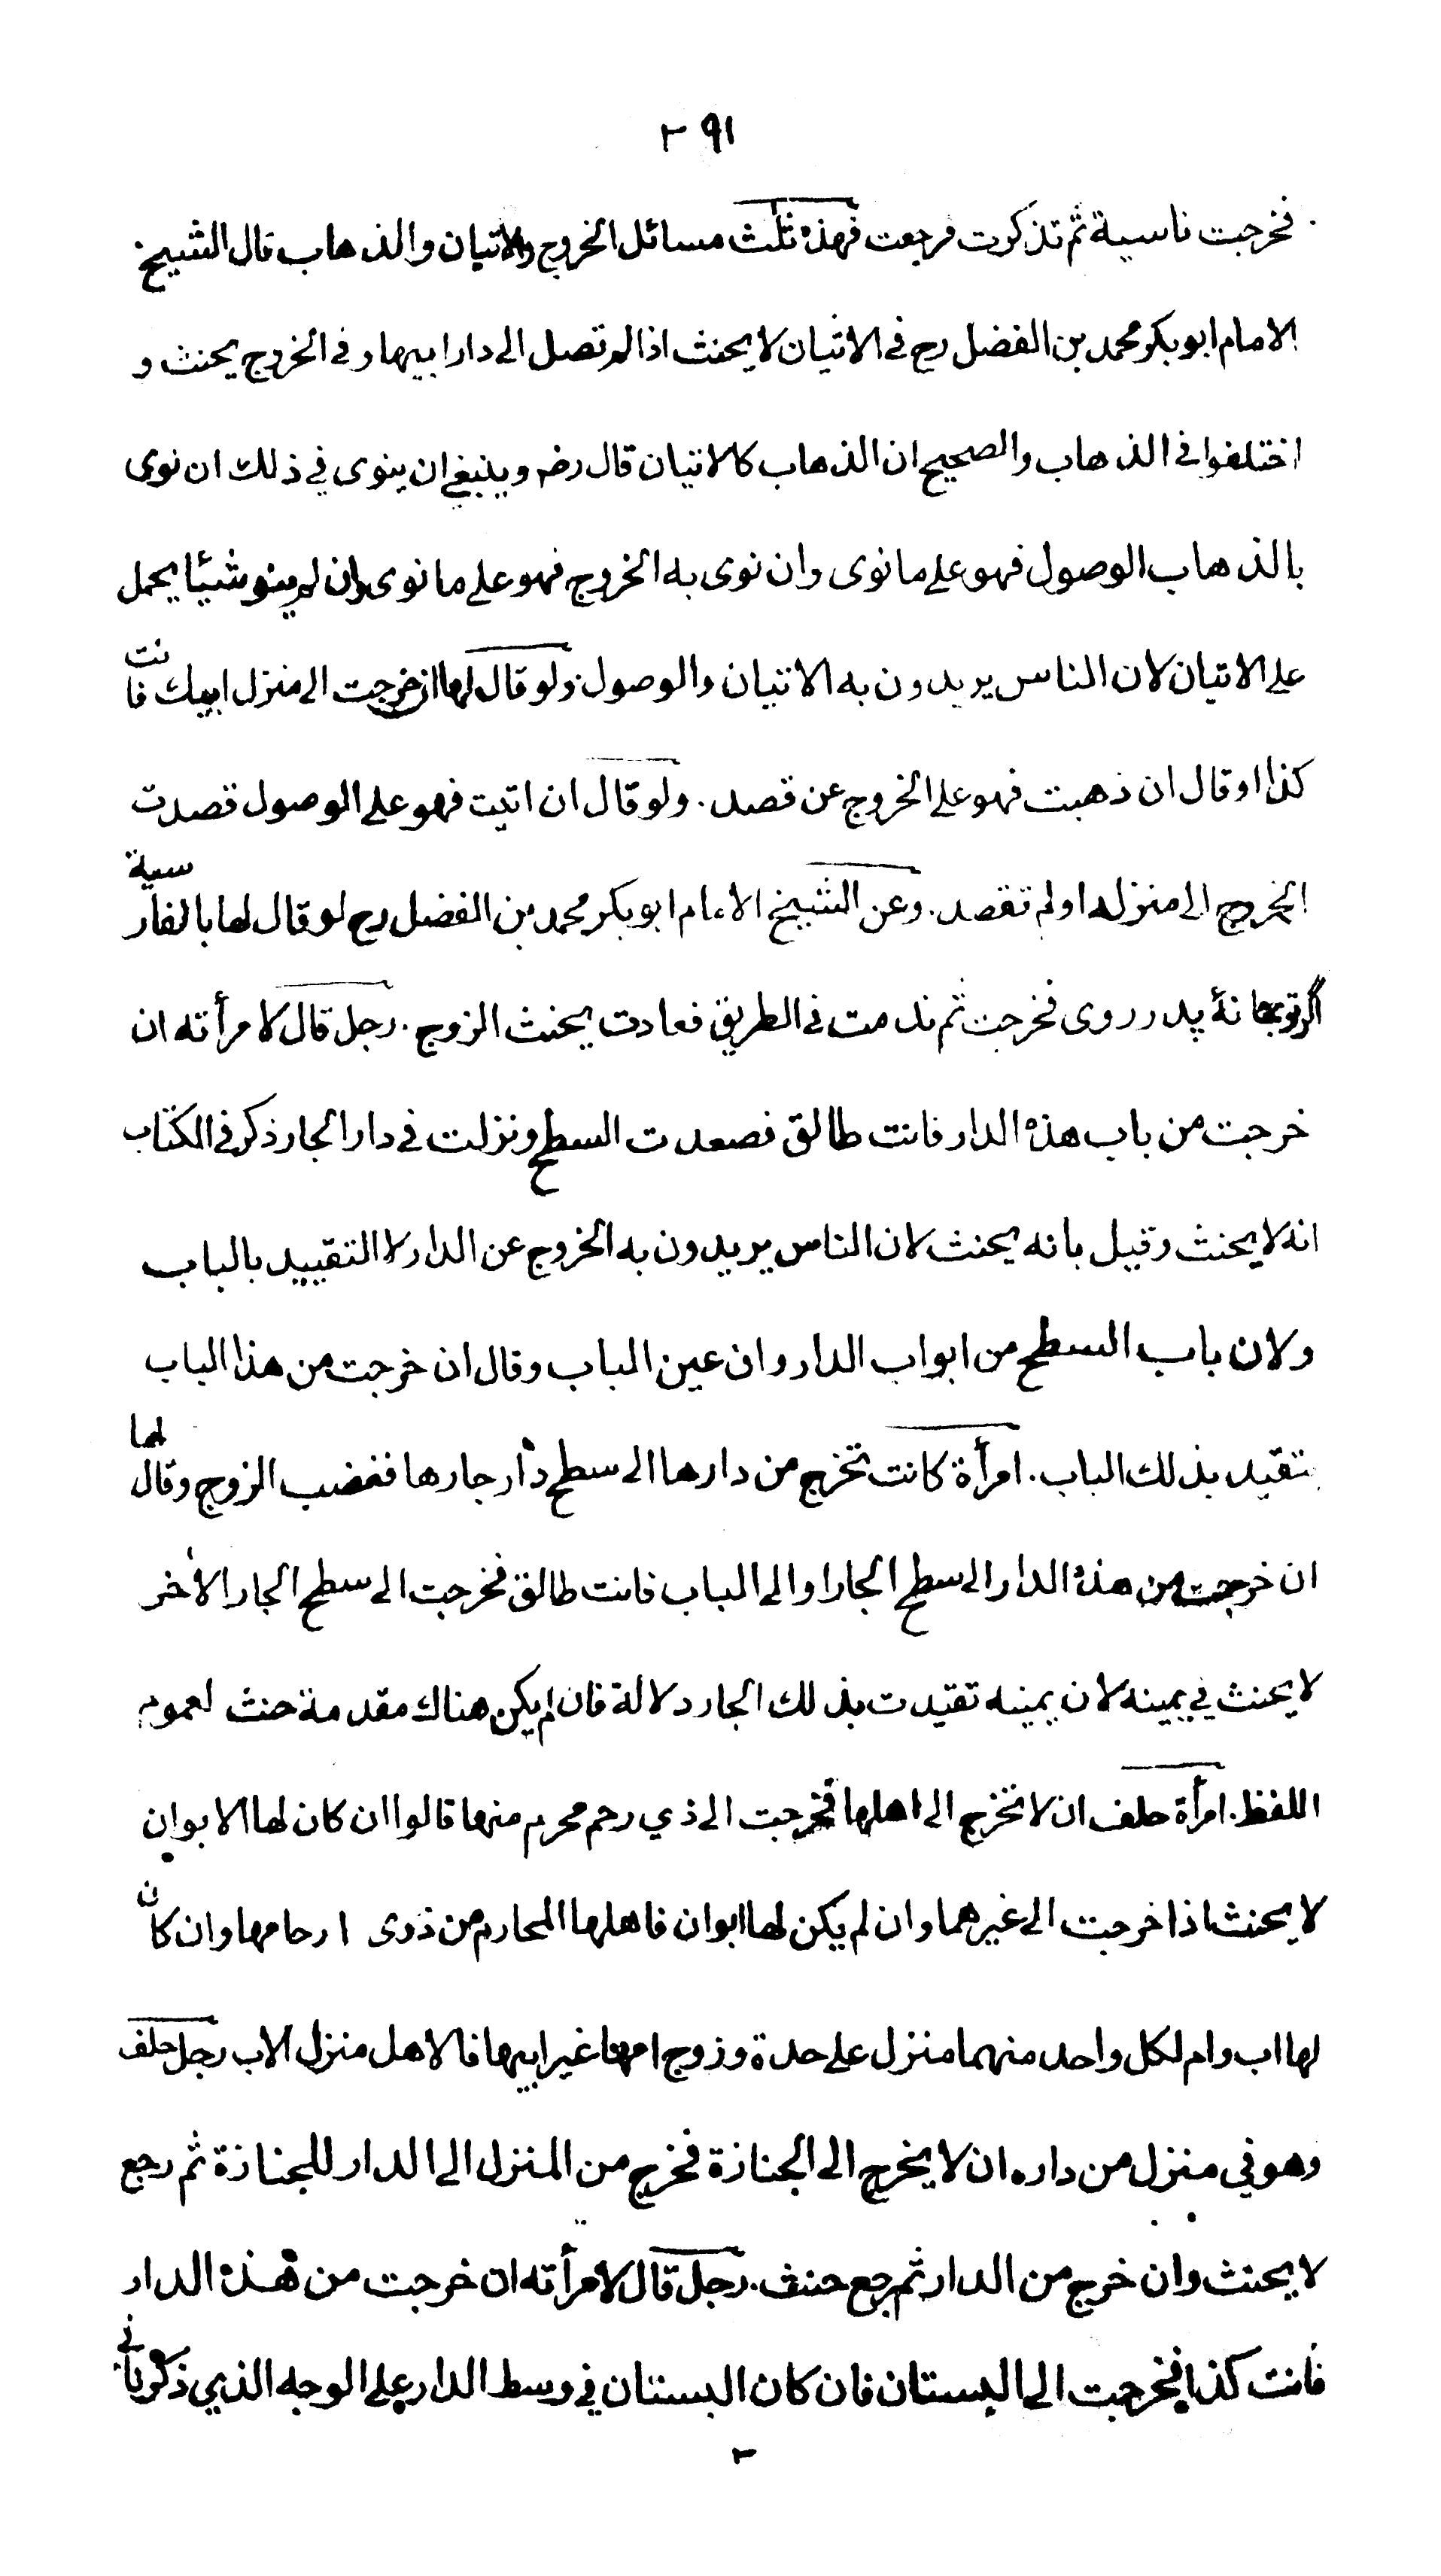 ٢٩١
فخرجت ناسية ثم تذكرت فرجعت فهذه ثلث مسائل الخروج والاتيان والذهاب قال الشيخ
الامام ابو بكر محمد بن الفضل رح في الاتيان لا يحنث اذا لم تصل الى دار ابيها وفي الخروج يحنث و
اختلفوا في الذهاب والصحيح ان الذهاب كالاتيان قال رضه وينبغي ان ينوى في ذلك ان نوى
بالذهاب الوصول فهو على ما نوى وان نوى به الخروج فهو على ما نوى وان لم ينو شيئا يحمل
على الاتيان لان الناس يريدون به الاتيان والوصول ولو قال لها ان خرجت الى منزل ابيك فانت
كذا او قال ان ذهبت فهو على الخروج عن قصد . ولو قال ان اتيت فهو على الوصول قصدت
الخروج الى منزله او لم تقصد . وعن الشيخ الامام ابو بكر محمد بن الفضل رح لو قال لها بالفارسية
اگر تو بخانهٔ پدر روى فخرجت ثم ندمت في الطريق فعادت يحنث الزوج . رجل قال لامرأته ان
خرجت من باب هذه الدار فانت طالق فصعدت السطح ونزلت في دار الجار ذكر في الكتاب
انه لا يحنث وقيل بانه يحنث لان الناس يريدون به الخروج عن الدار لا التقييد بالباب
ولان باب السطح من ابواب الدار وان عين الباب وقال ان خرجت من هذا الباب
تقيد بذلك الباب . امرأة كانت تخرج من دارها الى سطح دار جارها فغضب الزوج وقال لها
ان خرجت من هذه الدار الى سطح الجار او الى الباب فانت طالق فخرجت الى سطح الجار الاخر
لا يحنث في يمينه لان يمينه تقيدت بذلك الجار دلالة فان لم يكن هناك مقدمة حنث لعموم
اللفظ . امرأة حلف ان لا تخرج الى اهلها فخرجت الى ذي رحم محرم منها قالوا ان كان لها الابوان
لا يحنث اذا خرجت الى غيرهما وان لم يكن لها ابوان فاهلها المحارم من ذوى ارحامها وان كان
لها اب وام لكل واحد منهما منزل على حدة وزوج امها غير ابيها فالاهل منزل الاب رجل حلف
وهو في منزل من داره ان لا يخرج الى الجنازة فخرج من المنزل الى الدار للجنازة ثم رجع
لا يحنث وان خرج من الدار ثم رجع حنث . رجل قال لامرأته ان خرجت من هذه الدار
فانت كذا فخرجت الى البستان فان كان البستان في وسط الدار على الوجه الذي ذكرنا في
٢